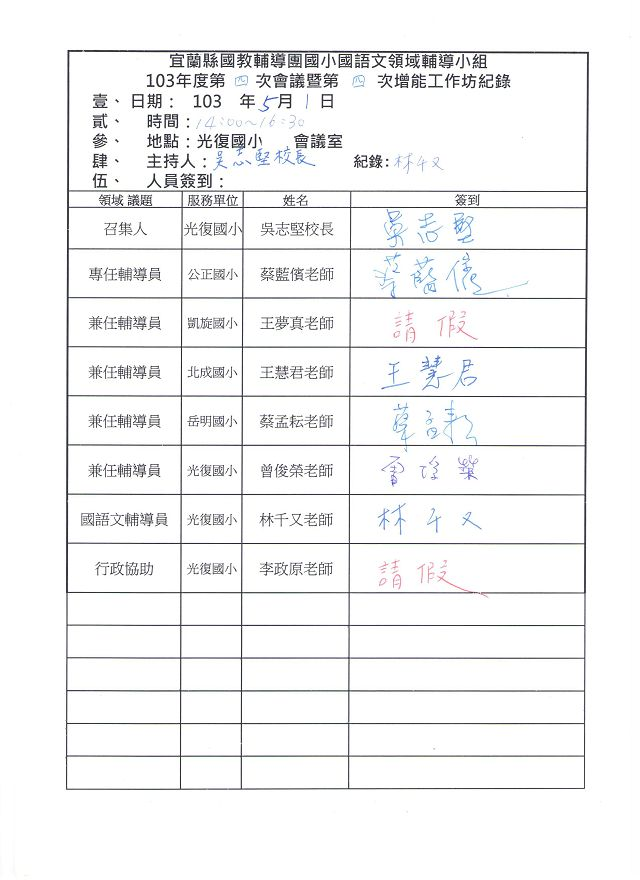 宜蘭縣國教輔導團國小國語文領域輔導小組
103年度第 四 次會議暨第 四 次增能工作坊紀錄
壹、 日期： 103 年 5 月 1 日
貳、 時間：14:00~16:30
參、 地點：光復國小 會議室
肆、 主持人：吳志堅校長 紀錄：林千又
伍、 人員簽到：
領域 議題 服務單位 姓名 簽到
召集人 光復國小 吳志堅校長 吳志堅
專任輔導員 公正國小 蔡藍儐老師 蔡藍儐
兼任輔導員 凱旋國小 王夢真老師 請假
兼任輔導員 北成國小 王慧君老師 王慧君
兼任輔導員 岳明國小 蔡孟耘老師 蔡孟耘
兼任輔導員 光復國小 曾俊榮老師 曾俊榮
國語文輔導員 光復國小 林千又老師 林千又
行政協助 光復國小 李政原老師 請假